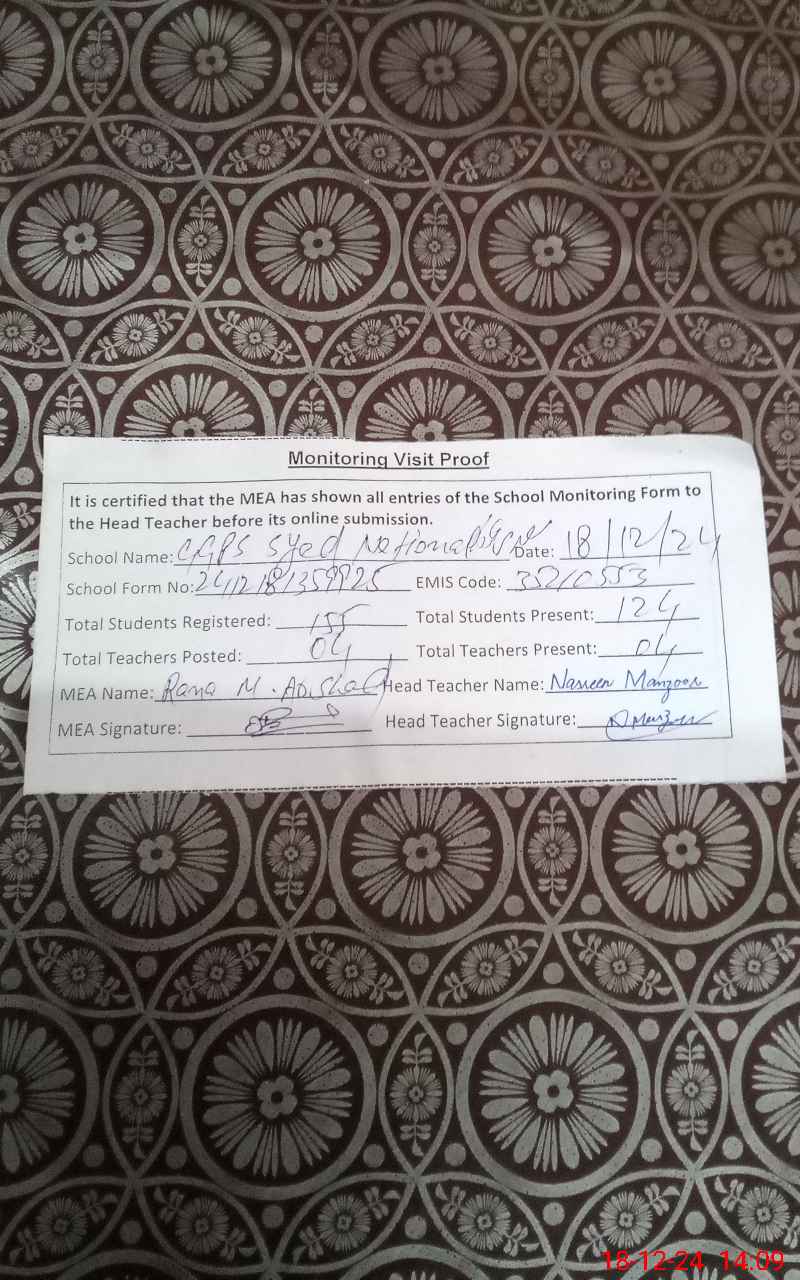 Monitoring Visit Proof
It is certified that the MEA has shown all entries of the School Monitoring Form to
the Head Teacher before its online submission.
School Name: Syed Date: 18/12/24
School Form No: EMIS Code: 35210553
Total Students Registered: 155 Total Students Present: 124
Total Teachers Posted: 04 Total Teachers Present: 04
MEA Name: Rana M. Head Teacher Name: Nasreen Manzoor
MEA Signature: Head Teacher Signature:
18-12-24 14:09